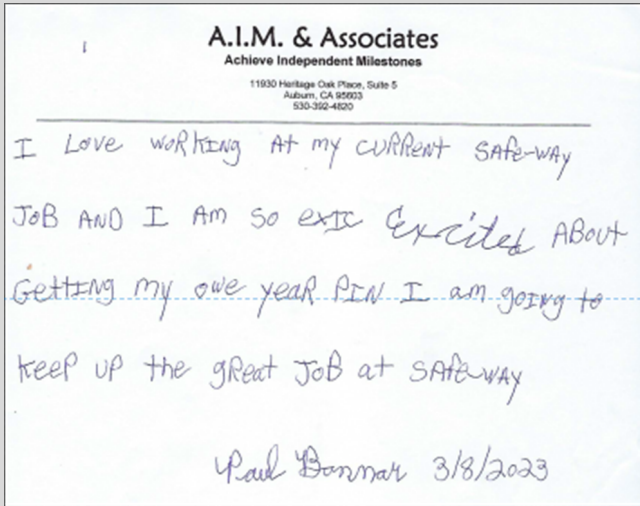 A.I.M. & Associates
Achieve Independent Milestones
11930 Heritage Oak Place, Suite 5
Auburn, CA 95603
530-392-4820
I Love WORKING At my CURRENT SAfe-WAY
JOB AND I AM So exIC Excited ABout
GettING my owe yeaR PIN I am goING to
keep up the gReat JoB at SAfe-WAY
Paul Bannar 3/8/2023